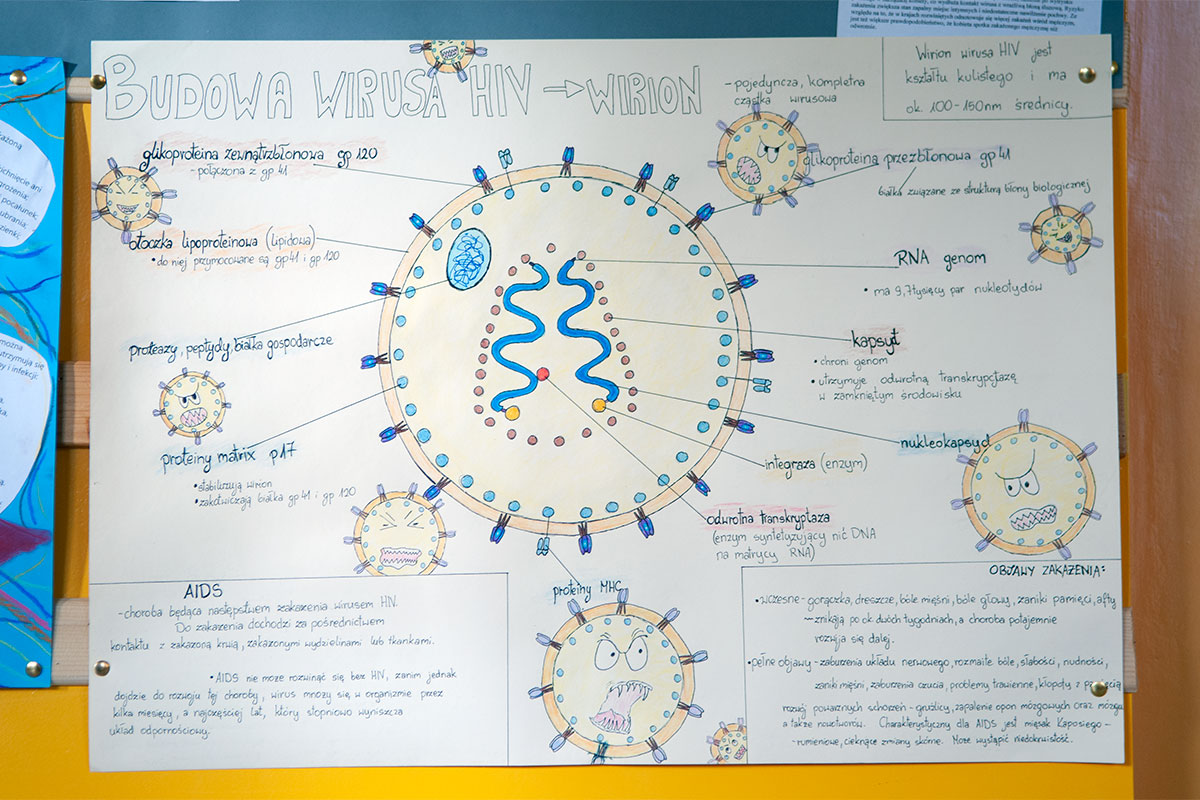 BUDOWA WIRUSA HIV → WIRION
- pojedyncza, kompletna
cząstka wirusowa
Wirion wirusa HIV jest
kształtu kulistego i ma
ok. 100-150nm średnicy.
glikoproteina zewnątrzbłonowa gp 120
- połączona z gp 41
glikoproteina przezbłonowa gp 41
białka związane ze strukturą błony biologicznej
otoczka lipoproteinowa (lipidowa)
• do niej przymocowane są gp41 i gp 120
RNA genom
• ma 9,7 tysięcy par nukleotydów
proteazy, peptydy, białka gospodarcze
kapsyt
• chroni genom
• utrzymuje odwrotną transkryptazę
w zamkniętym środowisku
proteiny matrix p17
• stabilizują wirion
• zakotwiczają białka gp 41 i gp 120
nukleokapsyd
integraza (enzym)
odwrotna transkryptaza
(enzym syntetyzujący nić DNA
na matrycy RNA)
proteiny MHC
AIDS
- choroba będąca następstwem zakażenia wirusem HIV.
Do zakażenia dochodzi za pośrednictwem
kontaktu z zakażoną krwią, zakażonymi wydzielinami lub tkankami.
• AIDS nie może rozwinąć się bez HIV, zanim jednak
dojdzie do rozwoju tej choroby, wirus mnoży się w organizmie przez
kilka miesięcy, a najczęściej lat, który stopniowo wyniszcza
układ odpornościowy.
OBJAWY ZAKAŻENIA:
• wczesne - gorączka, dreszcze, bóle mięśni, bóle głowy, zaniki pamięci, afty
— znikają po ok. dwóch tygodniach, a choroba potajemnie
rozwija się dalej.
• pełne objawy - zaburzenia układu nerwowego, rozmaite bóle, słabości, nudności,
zaniki mięśni, zaburzenia czucia, problemy trawienne, kłopoty z
rozwój poważnych schorzeń - gruźlicy, zapalenie opon mózgowych oraz mózgu
a także nowotworów. Charakterystyczny dla AIDS jest mięsak Kaposiego -
- rumieniowe, cieknące zmiany skórne. Może wystąpić niedokrwistość.